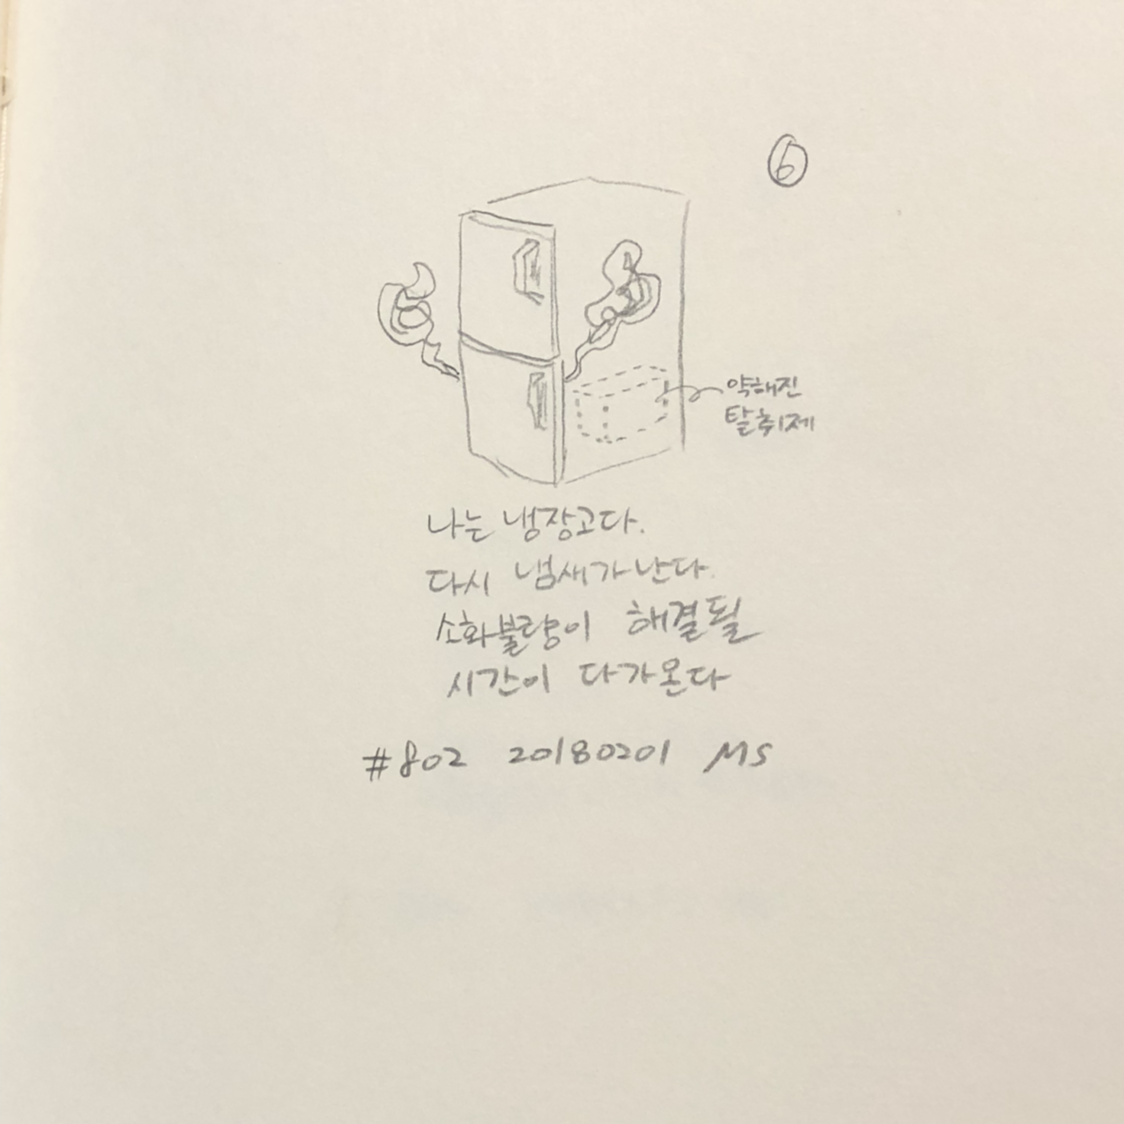 ⑥
약해진
탈취제
나는 냉장고다.
다시 냄새가 난다.
소화불량이 해결될
시간이 다가온다
#802 20180201 MS